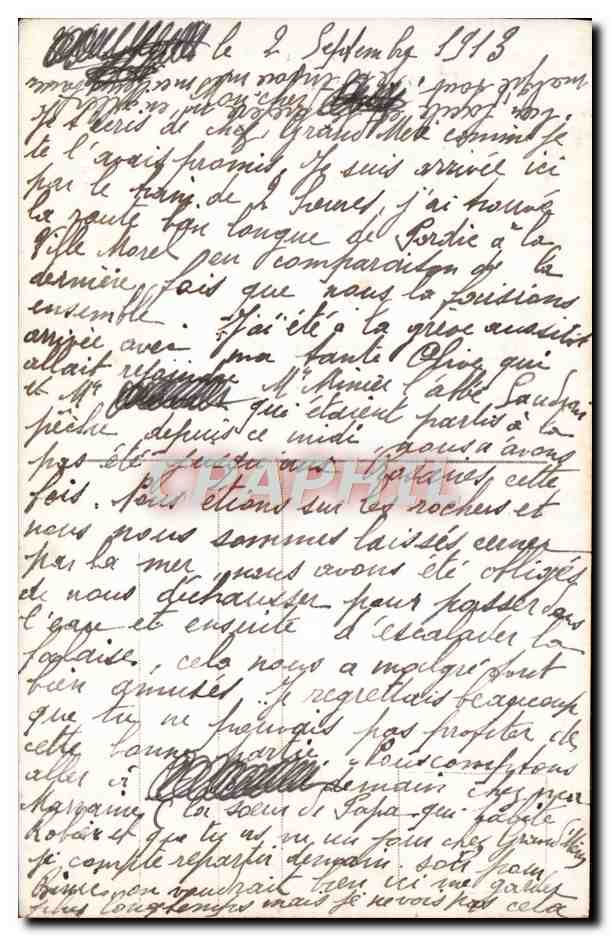 le 2 Septembre 1913
Mon cher
Je t'écris de chez Grand Mère comme je
te l'avais promis. Je suis arrivée ici
par le train de 2 heures, j'ai trouvé
la route bien longue de Pordic à la
Ville Morel en comparaison de la
dernière fois que nous la faisions
ensemble. J'ai été à la grève aussitôt
arrivée avec ma tante Olive qui
allait rejoindre Mr l'abbé
et Mr qui étaient partis à la
pêche depuis ce midi, nous n'avons
pas été jusqu'aux cette
fois. Nous étions sur les rochers et
nous nous sommes laissés cerner
par la mer, nous avons été obligés
de nous déchausser pour passer dans
l'eau et ensuite d'escalader la
falaise, cela nous a malgré tout
bien amusés. Je regrettais beaucoup
que tu ne pouvais pas profiter de
cette bonne partie. Nous comptons
aller à demain chez ma
Marraine (la sœur de Papa qui habite
et que tu as vu un jour chez Grand Mère)
je compte repartir demain soir pour
Binic, on voudrait bien ici me garder
plus longtemps mais je ne vois pas cela
CPAPHIL